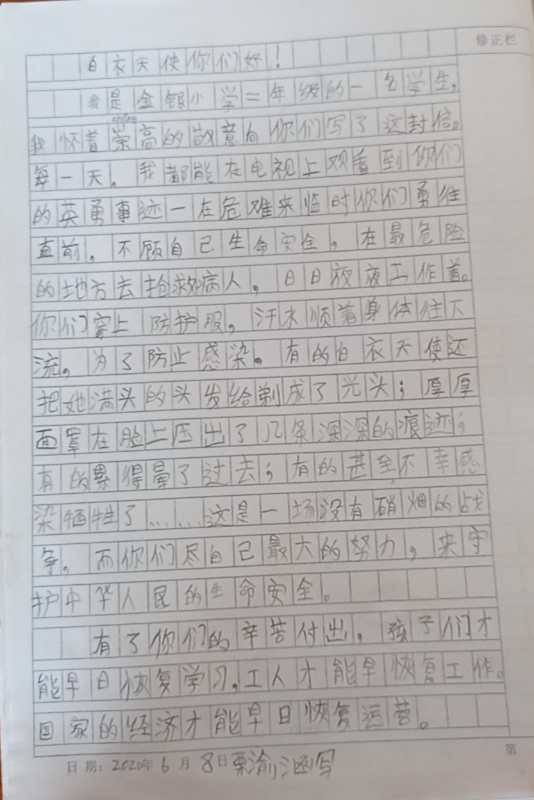 修正栏
白衣天使你们好！
我是金银小学二年级的一名学生，
我怀着崇高的敬意向你们写了这封信。
每一天，我都能在电视上观看到你们
的英勇事迹一在危难来临时你们勇往
直前，不顾自己生命安全，在最危险
的地方去抢救病人，日日夜夜工作着。
你们穿上防护服，汗水顺着身体往下
流，为了防止感染。有的白衣天使还
把她满头的头发给剃成了光头；厚厚
面罩在脸上压出了几条深深的痕迹；
有的累得晕了过去；有的甚至不幸感
染牺牲了……这是一场没有硝烟的战
争，而你们尽自己最大的努力，来守
护中华人民的生命安全。
有了你们的辛苦付出，孩子们才
能早日恢复学习，工人才能早恢复工作。
国家的经济才能早日恢复运营。
日期：2020年6月8日栗渝涵写
第